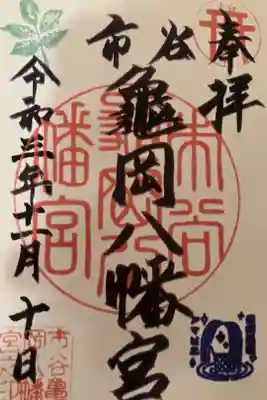 奉拝
市谷
龜岡八幡宮
令和三年十一月十日
市谷
龜岡八
幡宮
市谷亀
岡八幡